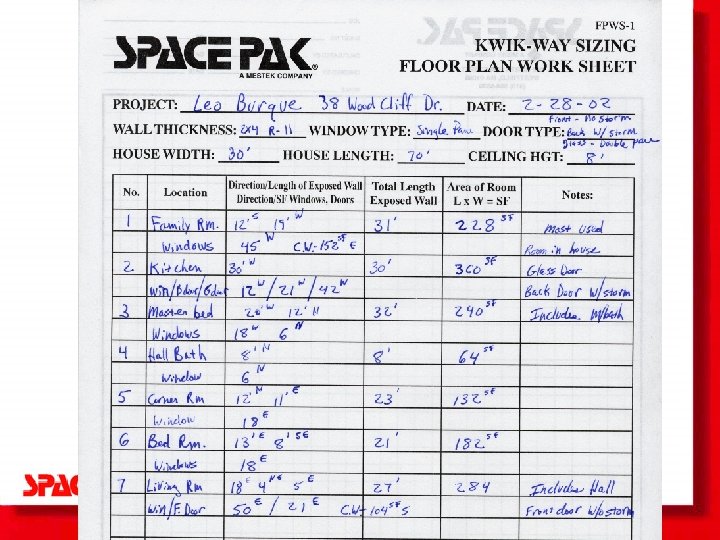 FPWS-1
SPACEPAK®
A MESTEK COMPANY
KWIK-WAY SIZING
FLOOR PLAN WORK SHEET
PROJECT: Leo Burque 38 Wood Cliff Dr. DATE: 2-28-02
Front - No Storm
WALL THICKNESS: 2x4 R-11 WINDOW TYPE: Single Pane DOOR TYPE: Back W/ Storm
Glass - Double pane
HOUSE WIDTH: 30' HOUSE LENGTH: 70' CEILING HGT: 8'
No. Location Direction/Length of Exposed Wall Direction/SF Windows, Doors Total Length Exposed Wall Area of Room L x W = SF Notes:
1 Family Rm. 12' S 19' W 31' 228 SF Most used
Windows 45 W C.W.- 152 SF E Room in house
2 Kitchen 30' W 30' 360 SF Glass Door
Win/Bdoor/Gdoor 12 W / 21 W / 42 W Back Door W/storm
3 Master bed 20' W 12' N 32' 240 SF Includes M/Bath
Windows 18 W 6 N
4 Hall Bath 8' N 8' 64 SF
Window 6 N
5 Corner Rm 12' N 11' E 23' 132 SF
Window 18 E
6 Bed Rm. 13' E 8' SE 21' 182 SF
Windows 18 E
7 Living Rm 18' E 4 NE 5 E 27' 284 Includes Hall
Win/F.Door 50 E / 21 E C.W- 104 SF S Front door w/o storm
SPACEPA